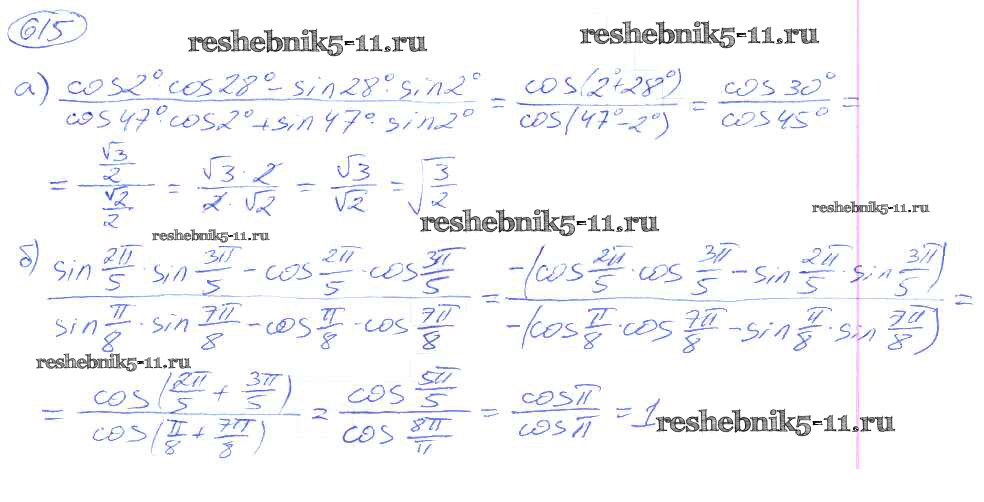 615
reshebnik5-11.ru reshebnik5-11.ru
а) (cos2°·cos28° - sin28°·sin2°)/(cos47°·cos2° + sin47°·sin2°) = cos(2°+28°)/cos(47°-2°) = cos30°/cos45° =
= (√3/2)/(√2/2) = (√3·2)/(2·√2) = √3/√2 = √(3/2)
reshebnik5-11.ru
reshebnik5-11.ru
reshebnik5-11.ru
б) (sin 2π/5 · sin 3π/5 - cos 2π/5 · cos 3π/5)/(sin π/8 · sin 7π/8 - cos π/8 · cos 7π/8) = -(cos 2π/5 · cos 3π/5 - sin 2π/5 · sin 3π/5)/-(cos π/8 · cos 7π/8 - sin π/8 · sin 7π/8) =
reshebnik5-11.ru
= cos(2π/5 + 3π/5)/cos(π/8 + 7π/8) = cos 5π/5 / cos 8π/π = cosπ/cosπ = 1
reshebnik5-11.ru